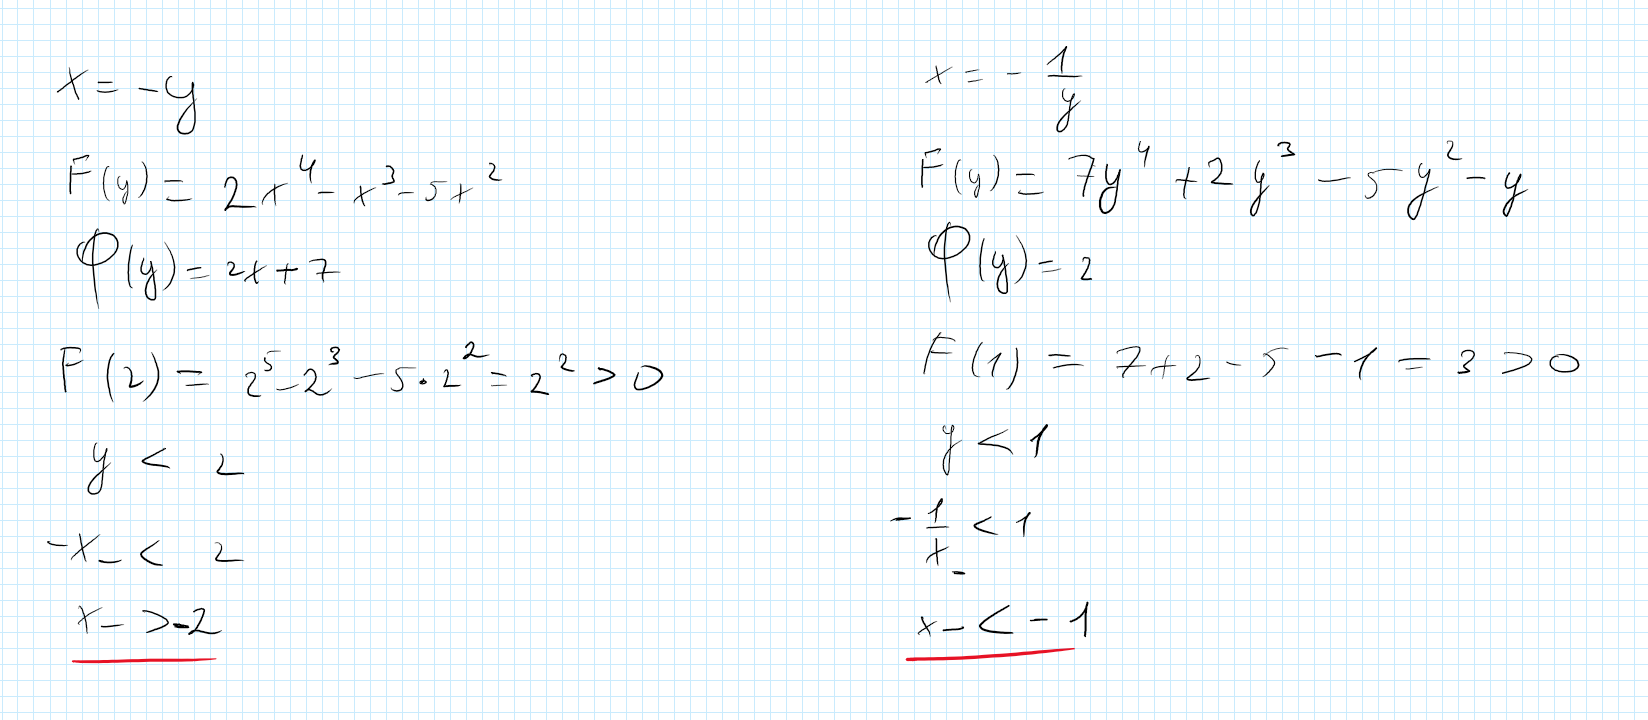 x = -y
F(y) = 2x⁴ - x³ - 5x²
φ(y) = 2x + 7
F(2) = 2⁵ - 2³ - 5·2² = 2² > 0
y < 2
-x_ < 2
x_ > -2
x = - 1/y
F(y) = 7y⁴ + 2y³ - 5y² - y
φ(y) = 2
F(1) = 7 + 2 - 5 - 1 = 3 > 0
y < 1
- 1/x_ < 1
x_ < -1